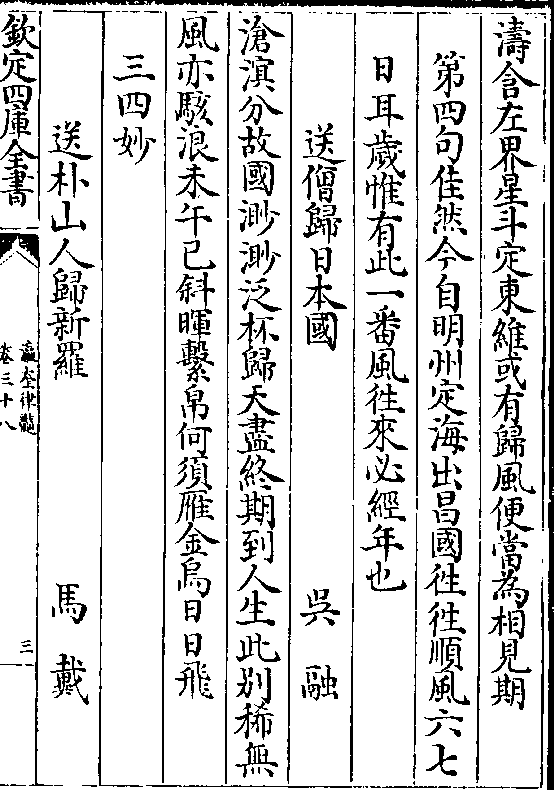 濤含左界星斗定東維或有歸風便當為相見期
第四句佳然今自明州定海出昌國徃徃順風六七
日耳歲惟有此一番風徃來必經年也
送僧歸日本國 吳融
滄溟分故國渺渺泛杯歸天盡終期到人生此别稀無
風亦駭浪未午已斜暉繫帛何須雁金烏日日飛
三四妙
送朴山人歸新羅 馬戴
欽定四庫全書
瀛奎律髓
卷三十八
三